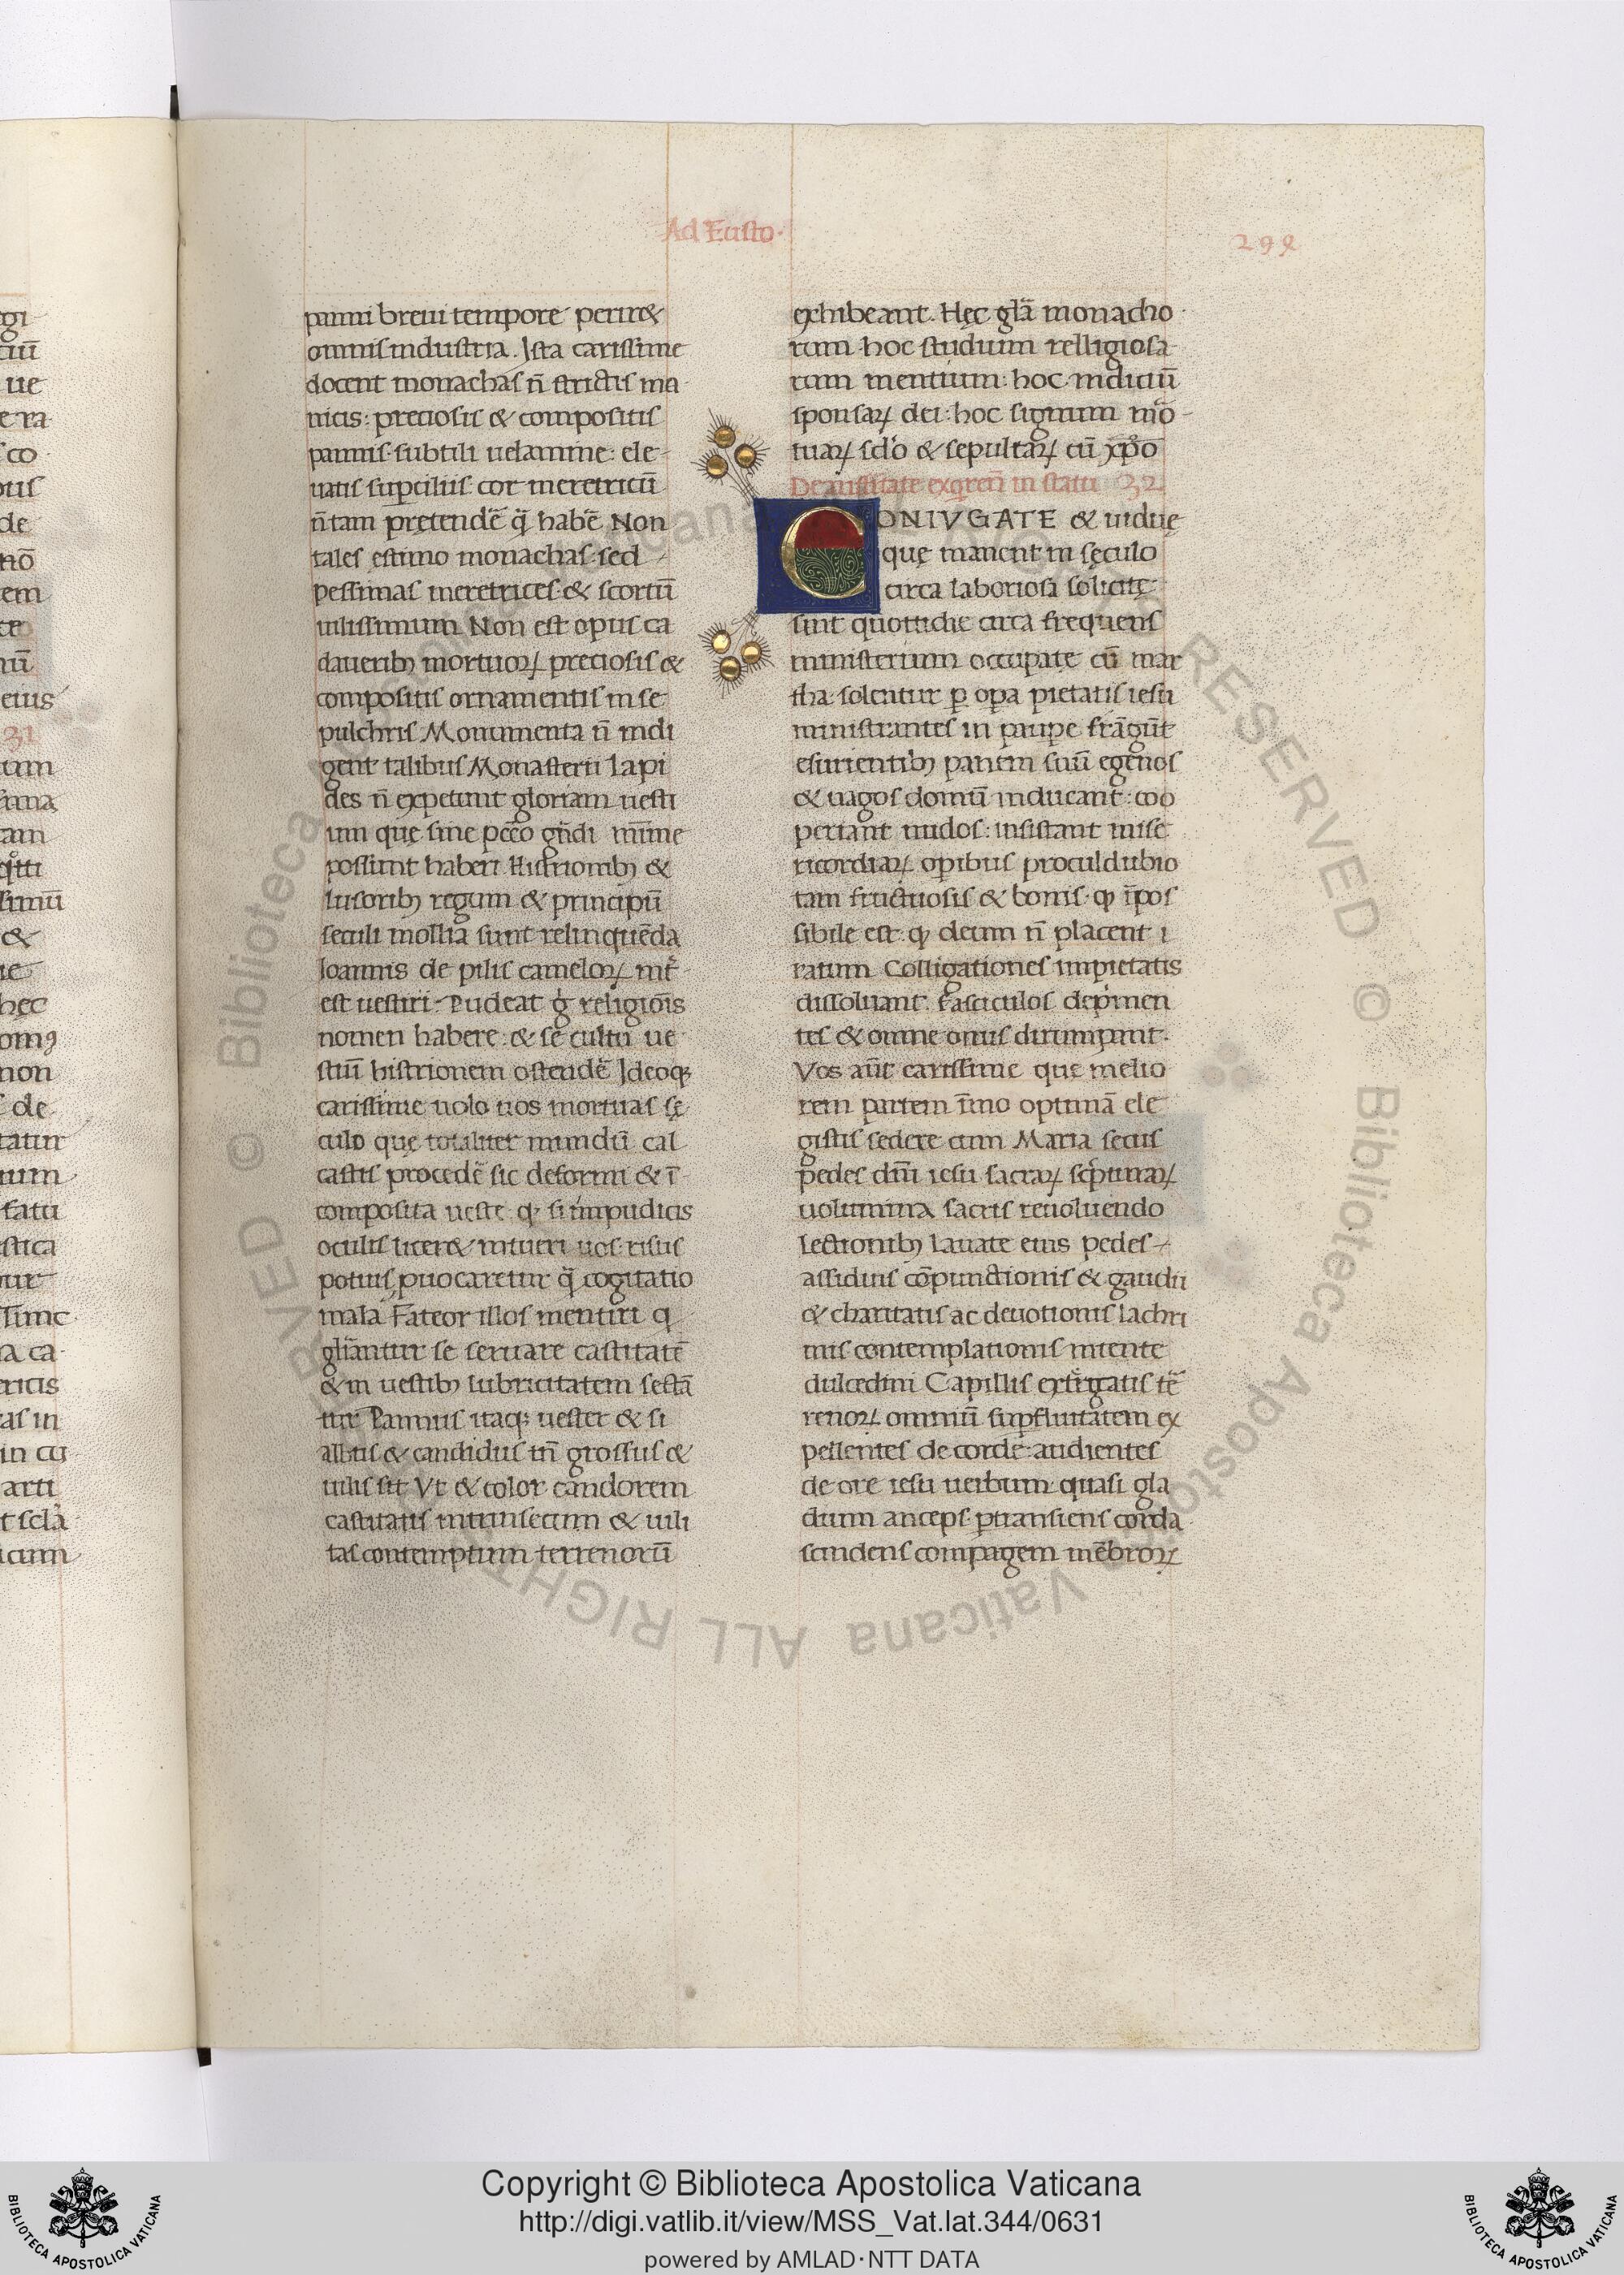 Ad Eusto·
299
panni breui tempore perire&
omnis industria. Ista carissime
docent monachas n̄ strictis ma
nicis: preciosis & compositis
pannis subtili uelamine: ele
uatis supciliis cor meretricū
n̄ tam pretendē q̄ habē Non
tales estimo monachas sed
pessimas meretrices & scortū
uilissimum Non est opus ca
daueribꝫ mortuoꝝ preciosis &
compositis ornamentis in se
pulchris Monumenta n̄ indi
gent talibus Monasterii lapi
des n̄ expetunt gloriam uesti
um quę sine pccō gn̄di mīme
possunt haberi Histrionibꝫ &
lusoribꝫ regum & principū
seculi mollia sunt relinquēda
Ioannis de pilis cameloꝝ
est uestiri Pudeat religiōis
nomen habere: & se cultu ue
stiū histrionem ostendē Ideoqꝫ
carissime uolo uos mortuas sę
culo que totaliter mundū cal
castis procedē sic deformi & ī
composita ueste si impudicis
oculis licere& intueri uos risus
potius puocaretur q̄ cogitatio
mala Fateor illos mentiri q
gliāntur se seruare castitatē
& in uestibꝫ lubricitatem sectā
tur Pannus itaqꝫ uester & si
albus & candidus tn̄ grossus &
uilis sit Vt & color candorem
castitatis intrinsecum & uili
tas contemptum terrenorū
exhibeant. Hęc glā monacho
rum hoc studium relligiosa
rum mentium: hoc indiciū
sponsaꝝ dei: hoc signum mo
tuaꝝ sclo & sepultaꝝ cū xpo
32
CONIVGATE & uiduę
quę manent in sęculo
circa laboriosa solicitę
sint quottidie circa frequens
ministerium occupatę cū mar
tha solentur p opa pietatis iesu
ministrantes in paupe frāgūt
esurientibꝫ panem suū egenos
& uagos domū inducant: coo
periant nudos: insistant mise
ricordiaꝝ opibus proculdubio
tam fructuosis & bonis ꝙ īpos
sibile est ꝙ deum n̄ placent i
ratum Colligationes impietatis
dissoluant. Fasciculos depmen
tes & omne onus dirumpant.
Vos aūt carissime que melio
rem partem īmo optimā ele
gistis sedere cum Maria secus
pedes dn̄i iesu sacraꝝ scpturaꝝ
uolumina sacris reuoluendo
lectionibꝫ lauate eius pedes
assiduis cōpunctionis & gaudii
& charitatis ac deuotionis lachri
mis contemplationis miente
dulcedini Capillis tē
renoꝝ omniū supfluitatem ex
pellentes de corde: audientes
de ore iesu uerbum quasi gla
dium anceps ptransiens corda
scindens compagem mēbroꝝ
Copyright © Biblioteca Apostolica Vaticana
http://digi.vatlib.it/view/MSS_Vat.lat.344/0631
powered by AMLAD·NTT DATA